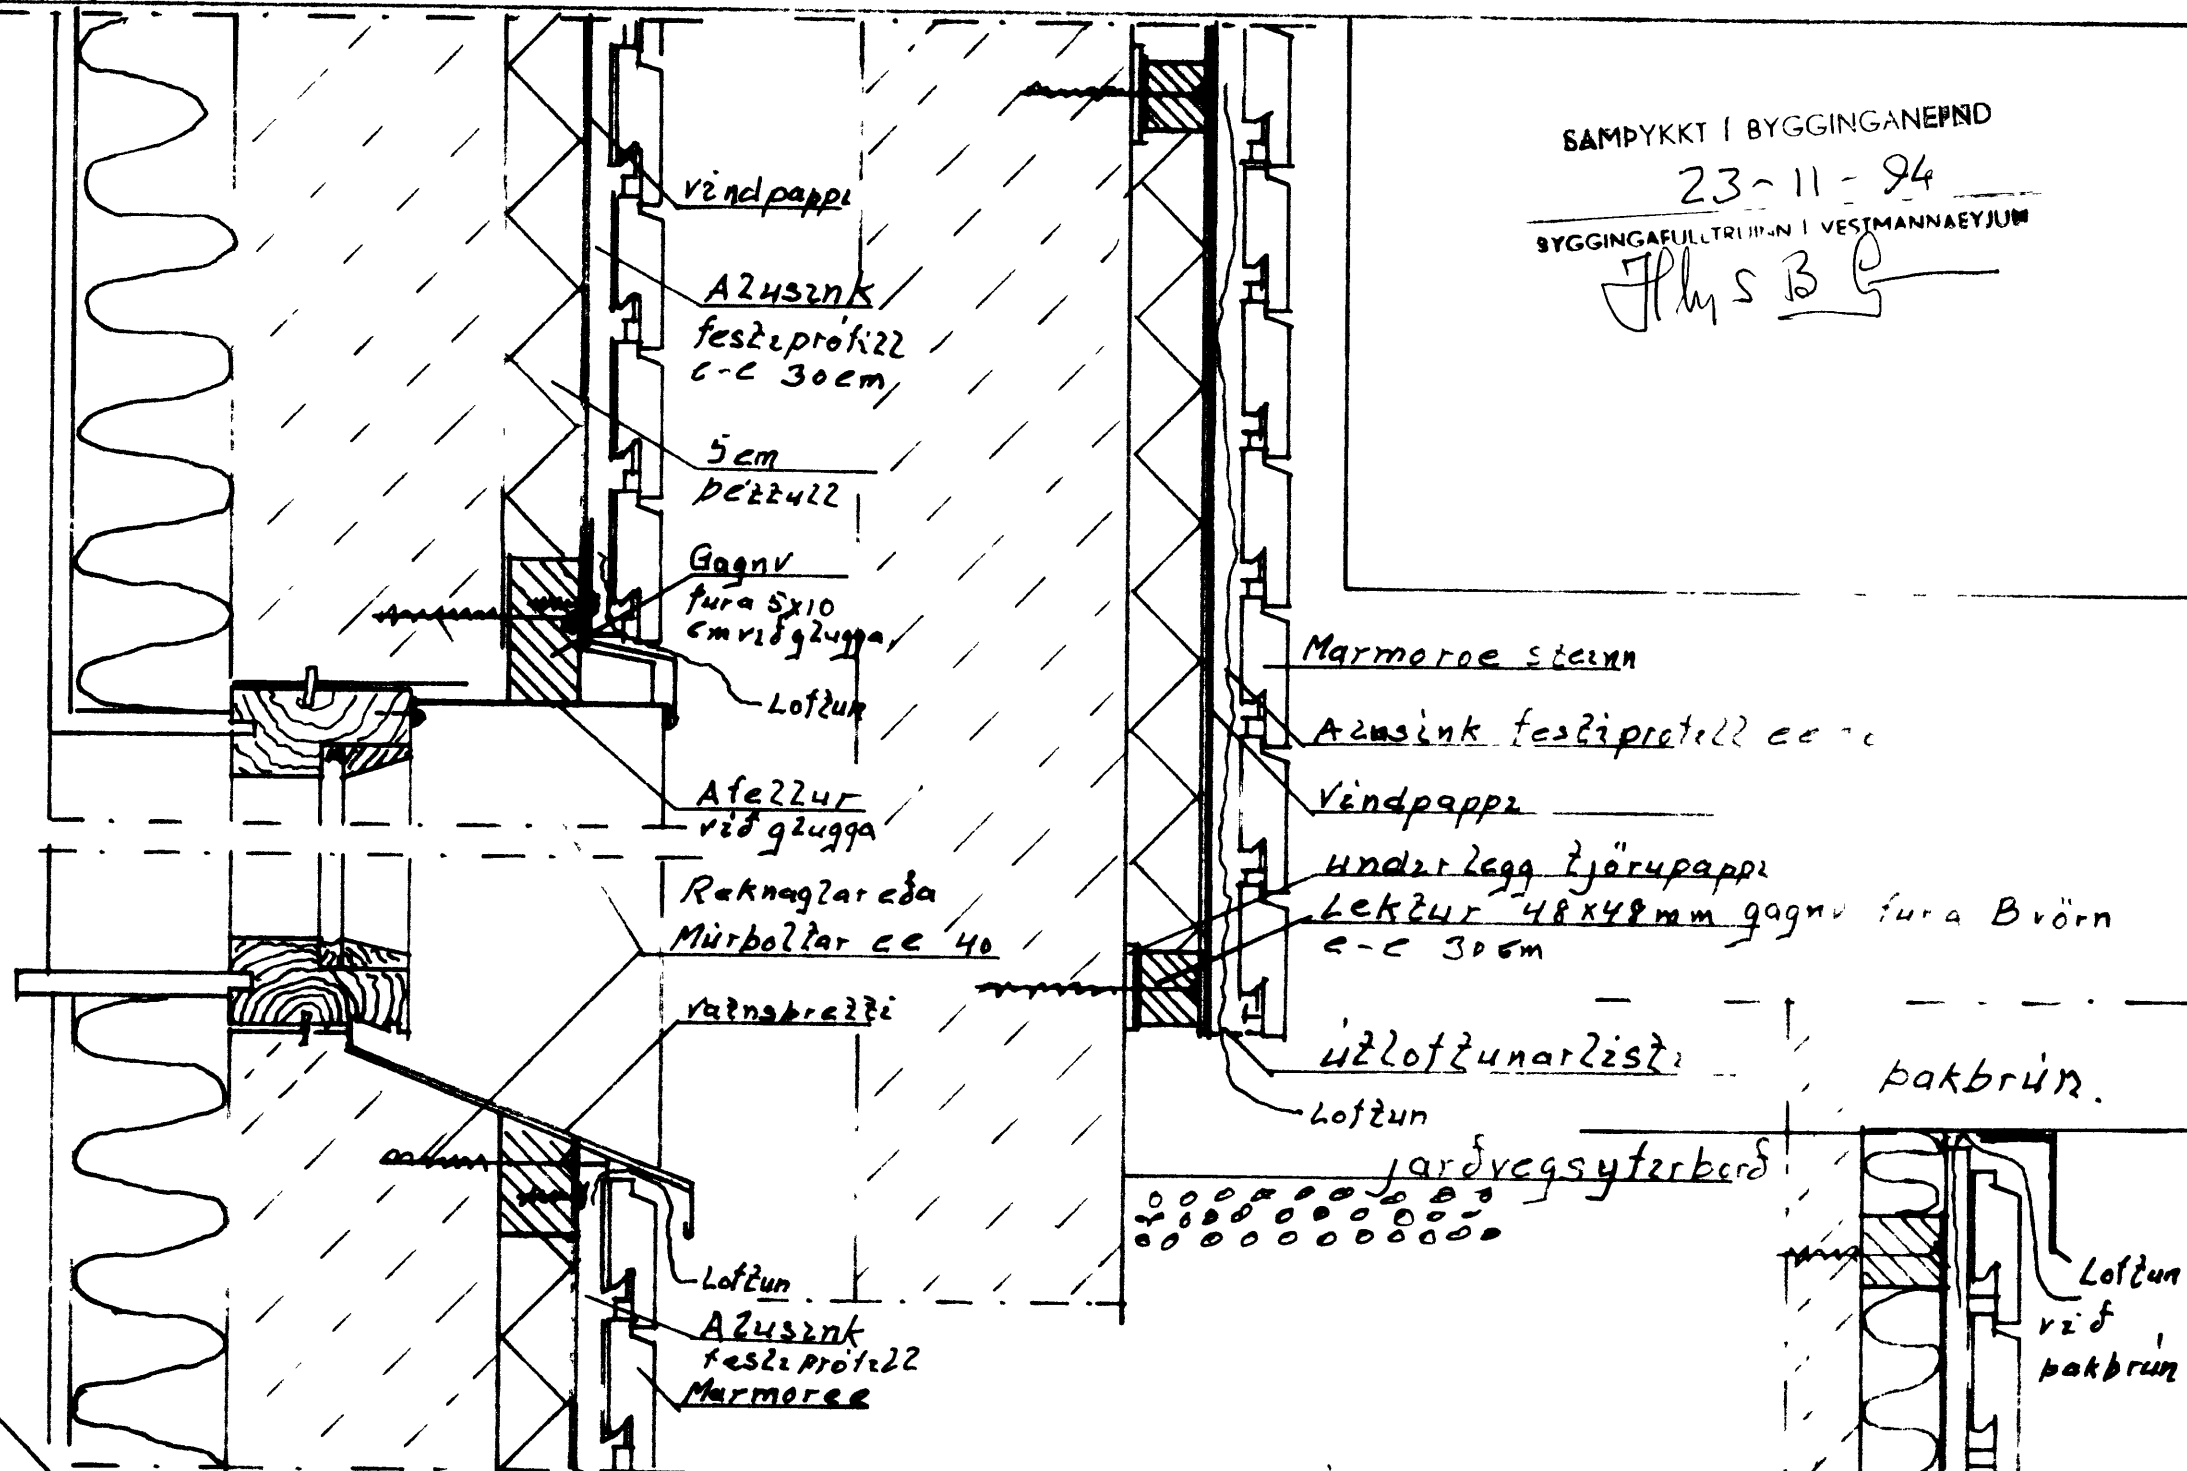 SAMÞYKKT Í BYGGINGANEFND
23-11-94
BYGGINGAFULLTRÚINN Í VESTMANNAEYJUM
vindpappi
Alusink
festiprófill
c-c 30cm
5cm
þéttull
Gagnv
fura 5x10
cm við glugga
Loftun
Áfellur
við glugga
Reknaglar eða
Múrboltar cc 40
vatnsbretti
Loftun
Alusink
festiprófill
Marmorcc
Marmoroc steinn
Alusink festiprofill cc
Vindpappi
undirlegg tjörupappi
Lektur 48x48mm gagnv fura Bvörn
c-c 30cm
útloftunarlisti
Loftun
jarðvegsyfirborð
þakbrún.
Loftun
við
þakbrún